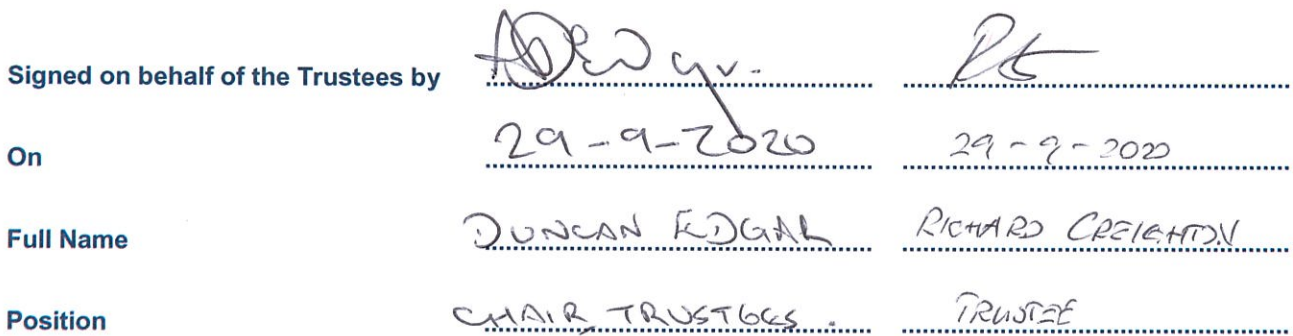 Signed on behalf of the Trustees by
On 29-9-2020 29-9-2020
Full Name DUNCAN EDGAR RICHARD CREIGHTON
Position CHAIR TRUSTEES. TRUSTEE